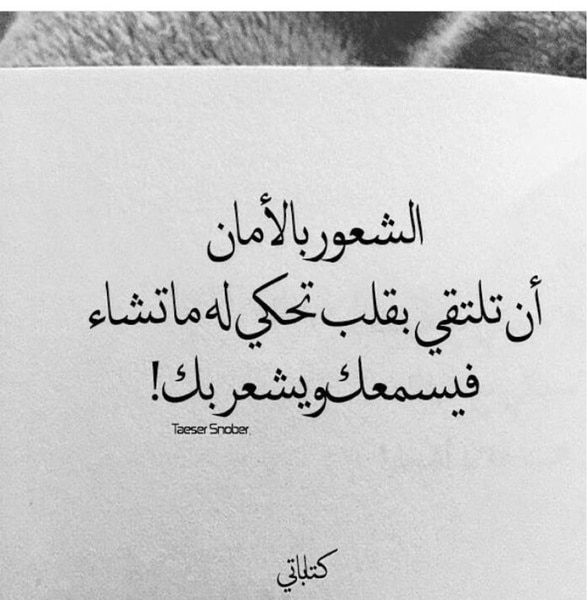 الشعور بالأمان
أن تلتقي بقلب تحكي له ما تشاء
فيسمعك ويشعر بك!
Taeser Snober
كتاباتي